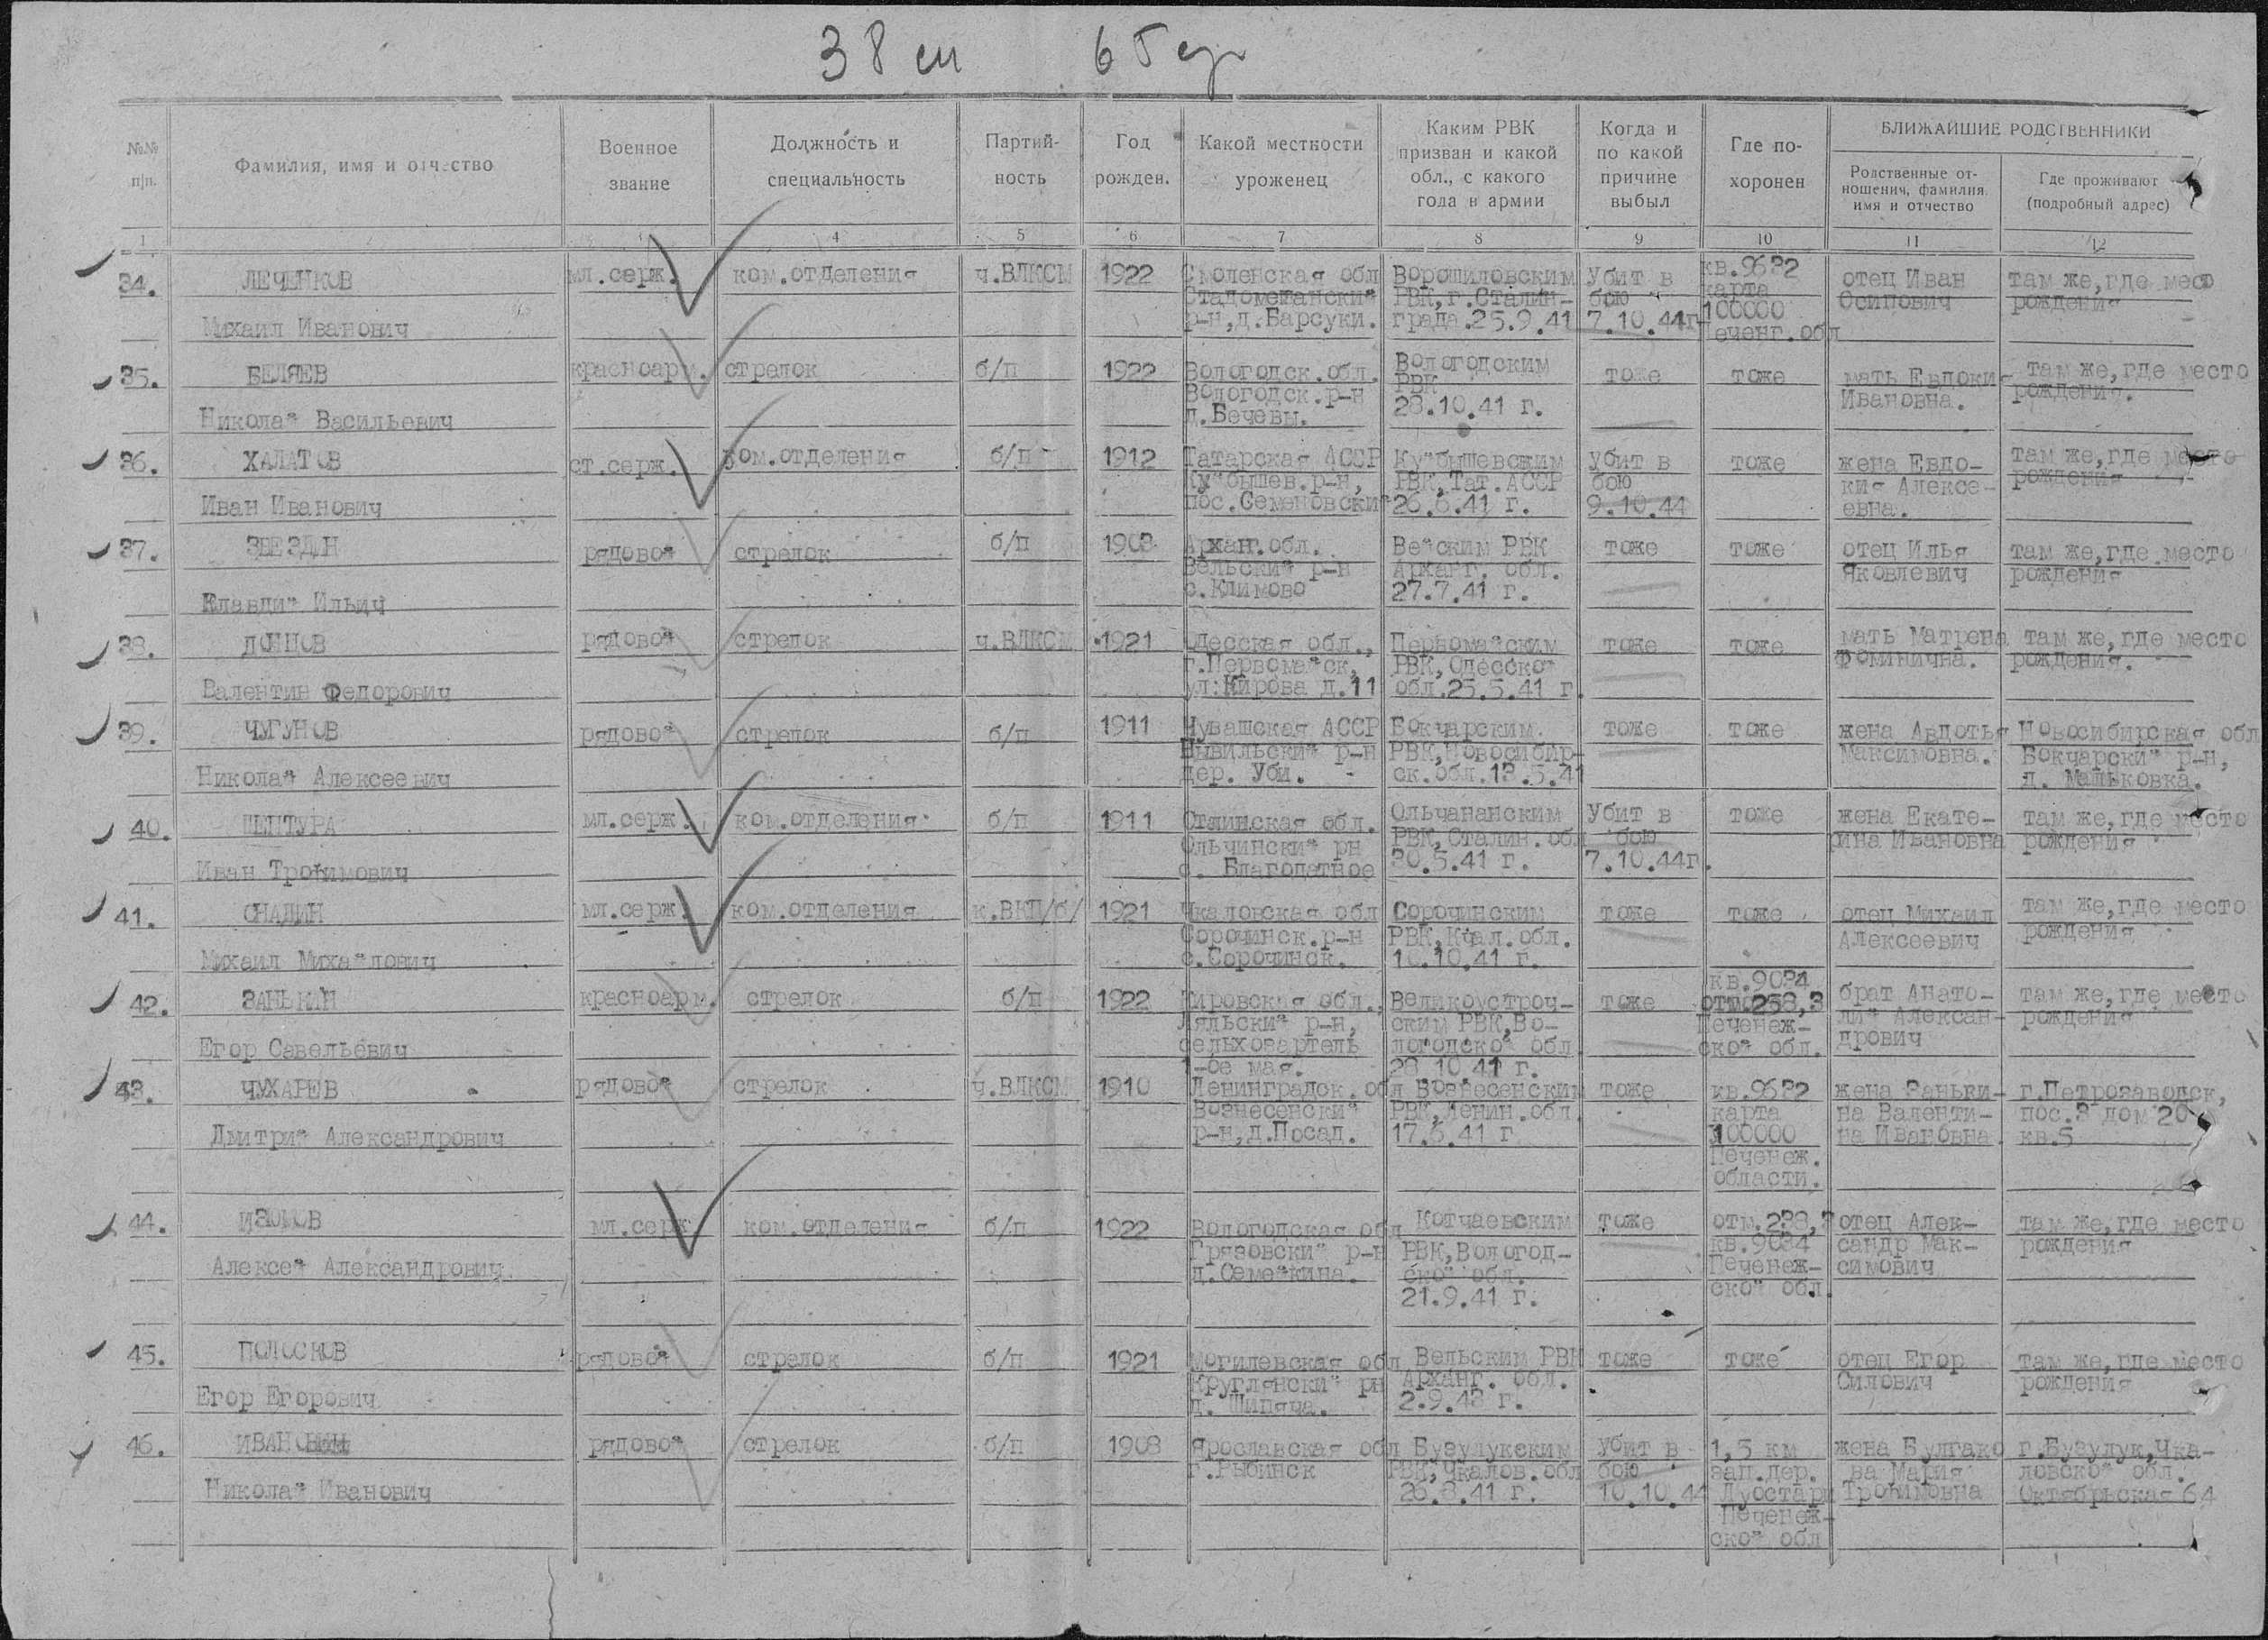 38 сп 65 гср
№№ п/п.
Фамилия, имя и отчество
Военное звание
Должность и специальность
Партий-ность
Год рожден.
Какой местности уроженец
Каким РВК призван и какой обл., с какого года в армии
Когда и по какой причине выбыл
Где по-хоронен
БЛИЖАЙШИЕ РОДСТВЕННИКИ
Родственные от-ношения, фамилия, имя и отчество
Где проживают (подробный адрес)
1 2 3 4 5 6 7 8 9 10 11 12
34. ЛЕЧЕНКОВ мл.серж. ком.отделения ч.ВЛКСМ 1922 Смоленская обл Ворошиловским Убит в кв.9632 отец Иван там же,где место
РВК,г.Сталин- бою карта Осипович рождения
Михаил Иванович р-н,д.Барсуки. града.25.9.41 7.10.44г 100000
Печенг.обл
35. БЕЛЯЕВ красноарм. стрелок б/п 1922 Вологодск.обл. Вологодским тоже тоже мать Евдоки- там же,где место
Вологодск.р-н РВК Ивановна. рождения.
Николай Васильевич д.Бечевы. 28.10.41 г.
36. ХАЛАТОВ ст.серж. ком.отделения б/п 1912 Татарская АССР Куйбышевским убит в тоже жена Евдо- там же,где место
Куйбышев.р-н, РВК,Тат.АССР бою кия Алексе- рождения
Иван Иванович пос.Семеновский 26.6.41 г. 9.10.44 евна.
37. ЗВЕЗДИН рядовой стрелок б/п 1908 Архан.обл. Вельским РВК тоже тоже отец Илья там же,где место
Вельский р-н Арханг. обл. Яковлевич рождения
Клавдий Ильич с.Климово 27.7.41 г.
38. ДОНЦОВ рядовой стрелок ч.ВЛКСМ 1921 Одесская обл., Первомайским тоже тоже мать Матрена там же,где место
г.Первомайск, РВК,Одесской Фоминична. рождения.
Валентин Федорович ул:Кирова д.11 обл.25.5.41 г.
39. ЧУГУНОВ рядовой стрелок б/п 1911 Чувашская АССР Бокчарским тоже тоже жена Авдотья Новосибирская обл
Цывильский р-н РВК,Новосибир- Максимовна. Бокчарский р-н,
Николай Алексеевич дер. Уби. ск.обл.18.5.41 д. Мальковка.
40. ШЕПТУРА мл.серж. ком.отделения б/п 1911 Сталинская обл. Ольчананским Убит в тоже жена Екате- там же,где место
Ольчинский рн РВК,Сталин.обл бою рина Ивановна рождения
Иван Трофимович с. Благодатное 30.5.41 г. 7.10.44г.
41. СНАДИН мл.серж. ком.отделения к.ВКП/б/ 1921 Чкаловская обл Сорочинским тоже тоже отец Михаил там же,где место
Сорочинск.р-н РВК,Кчал.обл. Алексеевич рождения
Михаил Михайлович с.Сорочинск. 10.10.41 г.
42. ЗАНЬКИН красноарм. стрелок б/п 1922 Кировская обл., Великоустроч- тоже кв.9034 брат Анато- там же,где место
Ляльский р-н, ским РВК,Во- отм.258,3 лий Алексан- рождения
Егор Савельевич сельхозартель логодской обл Печенеж-ской обл. дрович
1-ое мая. 28.10.41 г.
43. ЧУХАРЕВ рядовой стрелок ч.ВЛКСМ 1910 Ленинградск.обл Вознесенским тоже кв.9632 жена Заньки- г.Петрозаводск,
Вознесенский РВК,Ленин.обл. карта на Валенти- пос.3 дом 20
Дмитрий Александрович р-н,д.Посад. 17.6.41 г 100000 на Ивановна кв.5
Печенеж.
области.
44. ИЗЮМОВ мл.серж ком.отделения б/п 1922 Вологодская обл Котчаевским тоже отм.238, отец Алек- там же,где место
Грязовский р-н РВК,Вологод- кв.9034 сандр Мак- рождения
Алексей Александрович д.Семейкина. ской обл. Печенеж- симович
21.9.41 г. ской обл.
45. ПОЛОСКОВ рядовой стрелок б/п 1921 Могилевская обл Вельским РВК тоже тоже отец Егор там же,где место
Круглянский рн Арханг. обл. Силович рождения
Егор Егорович д. Шипяча. 2.9.43 г.
46. рядовой стрелок б/п 1908 Ярославская обл Бузулукским убит в 1,5 км жена Булгако г.Бузулук,Чка-
г.Рыбинск РВК,Чкалов.обл бою зап.дер. ва Мария ловской обл.
Николай Иванович 26.8.41 г. 10.10.44 Луостари Трофимовна Октябрьская 64
Печенеж-
ской обл